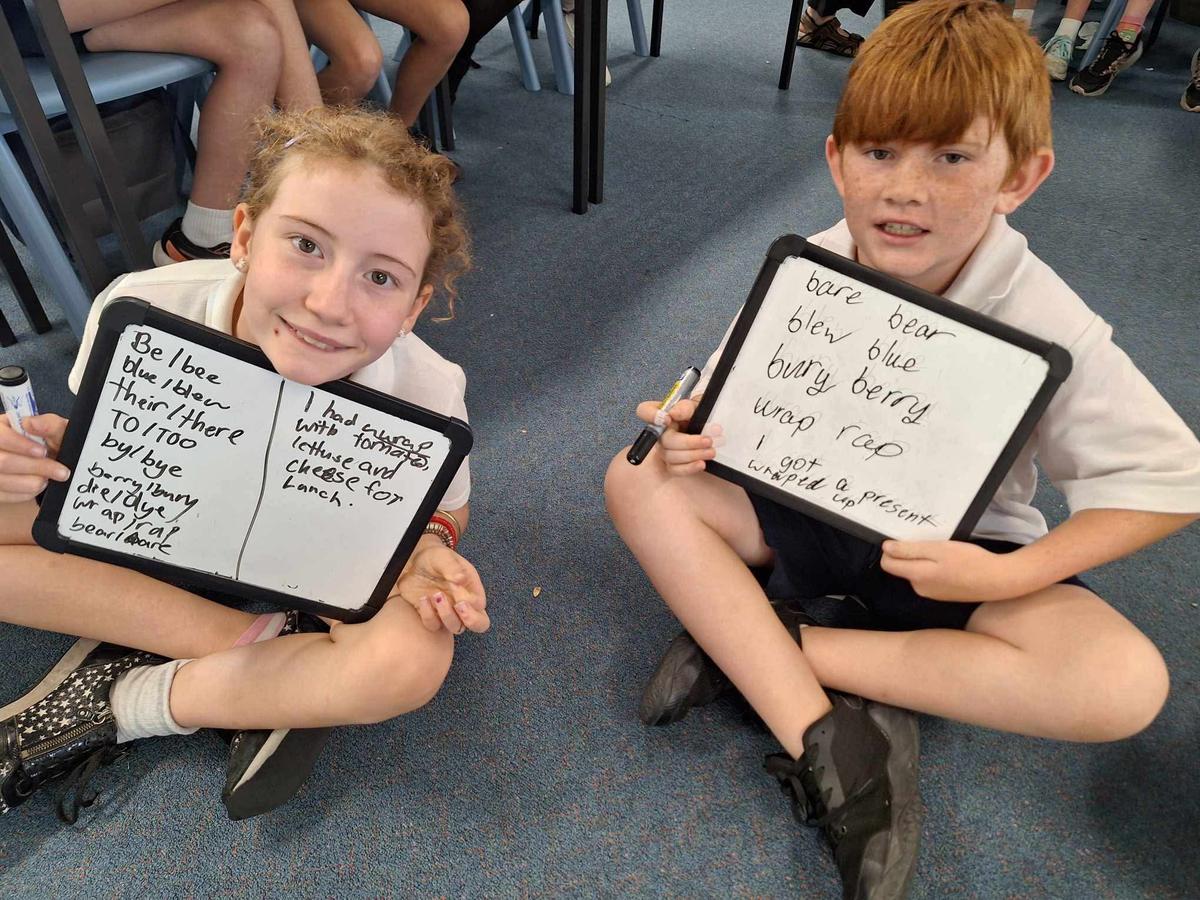 Be/bee
blue/blew
their/there
TO/TOO
by/bye
berry/bury
die/dye
wrap/rap
bear/bare
I had a wrap
with tomato,
lettuse and
cheese for
Lunch.
bare bear
blew blue
bury berry
wrap rap
I got a present
wraped up